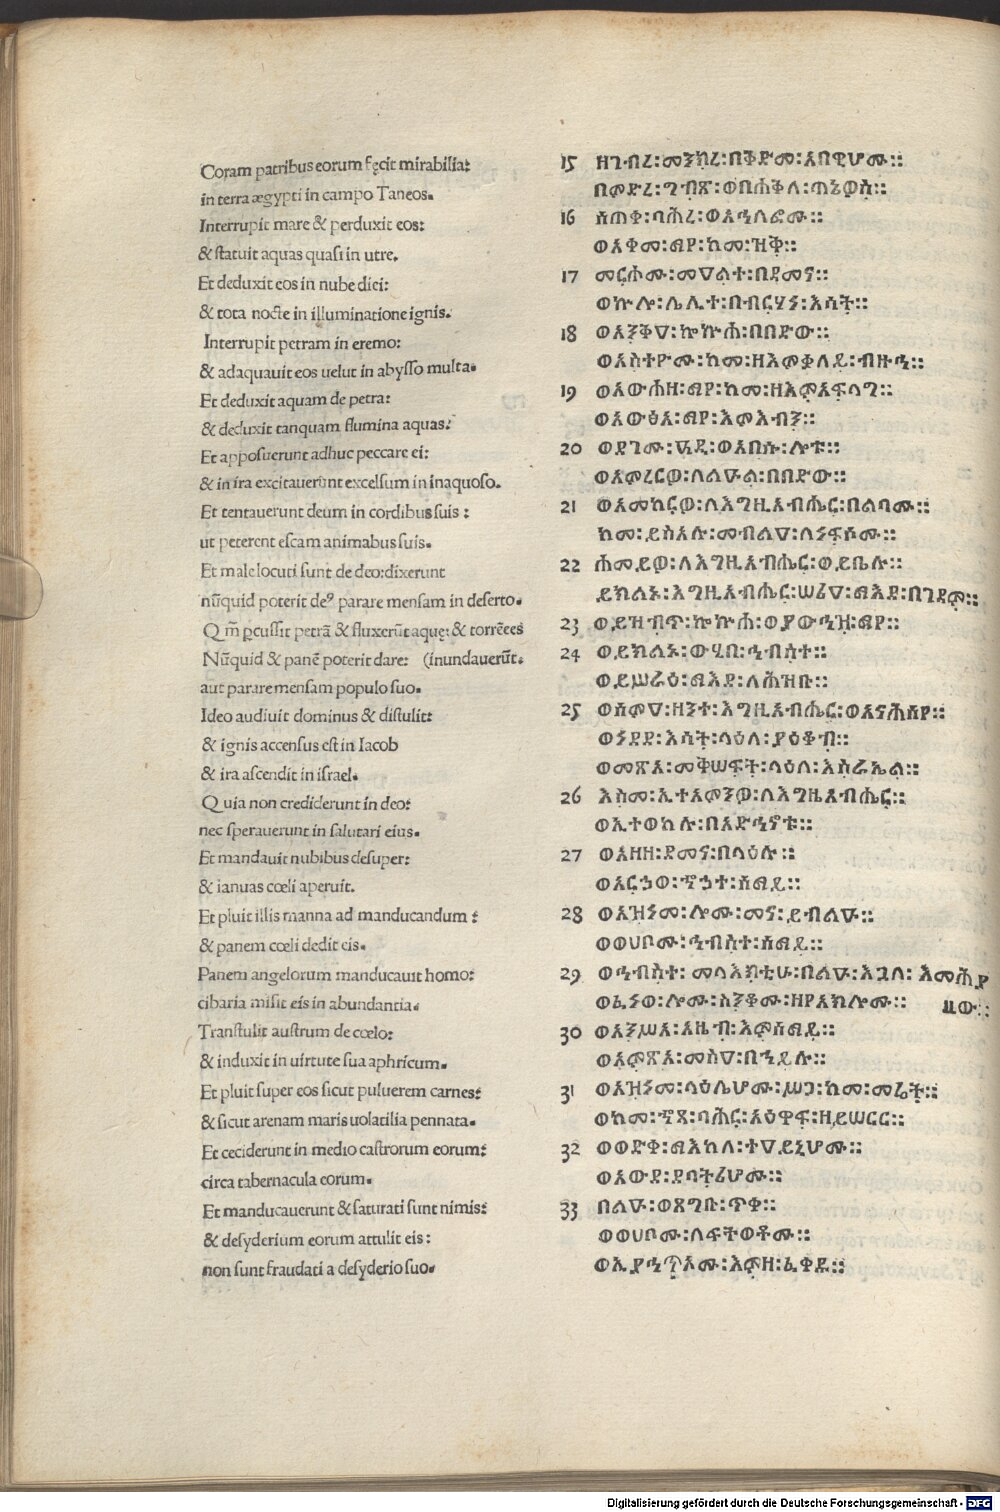 Coram patribus eorum fęcit mirabilia:
in terra ægypti in campo Taneos.
Interrupit mare & perduxit eos:
& statuit aquas quasi in utre.
Et deduxit eos in nube diei:
& tota nocte in illuminatione ignis.
Interrupit petram in eremo:
& adaquauit eos uelut in abysso multa.
Et deduxit aquam de petra:
& deduxit tanquam flumina aquas:
Et apposuerunt adhuc peccare ei:
& in ira excitauerunt excelsum in inaquoso.
Et tentauerunt deum in cordibus suis :
ut peterent escam animabus suis.
Et male locuti sunt de deo: dixerunt
nūquid poterit de⁹ parare mensam in deserto.
Qm̄ p̱cussit petrā & fluxerūt aquę: & torrētes
Nūquid & panē poterit dare: (inundauerūt.
aut parare mensam populo suo.
Ideo audiuit dominus & distulit:
& ignis accensus est in Iacob
& ira ascendit in israel.
Quia non crediderunt in deo:
nec sperauerunt in salutari eius.
Et mandauit nubibus desuper:
& ianuas cœli aperuit.
Et pluit illis manna ad manducandum :
& panem cœli dedit eis.
Panem angelorum manducauit homo:
cibaria misit eis in abundantia.
Transtulit austrum de cœlo:
& induxit in uirtute sua aphricum.
Et pluit super eos sicut puluerem carnes:
& sicut arenam maris uolatilia pennata.
Et ceciderunt in medio castrorum eorum:
circa tabernacula eorum.
Et manducauerunt & saturati sunt nimis:
& desyderium eorum attulit eis :
non sunt fraudati a desyderio suo.
15 ዘገብረ፡መንክረ፡በቅድመ፡አበዊሆሙ።
በምድረ፡ግብጽ፡ወበሐቅለ፡ጣኔዎስ።
16 ሰጠቀ፡ባሕረ፡ወአኅለፎሙ።
ወአቀመ፡ማየ፡ከመ፡ዝቅ።
17 መርሖሙ፡መዓልተ፡በደመና።
ወኵሎ፡ሌሊተ፡በብርሃነ፡እሳት።
18 ወአንቅዐ፡ኰኵሐ፡በበድው።
ወአስተዮሙ፡ከመ፡ዘእምቀላይ፡ብዙኅ።
19 ወአውሐዘ፡ማየ፡ከመ፡ዘእምአፍላግ።
ወአውፅአ፡ማየ፡እምእብን።
20 ወደገሙ፡ዓዲ፡ወአበሱ፡ሎቱ።
ወአምረርዎ፡ለልዑል፡በበድው።
21 ወአመከርዎ፡ለእግዚአብሔር፡በልቦሙ።
ከመ፡ይስአሉ፡መብልዐ፡ለነፍሶሙ።
22 ሐመይዎ፡ለእግዚአብሔር፡ወይቤሉ።
ይክልኑ፡እግዚአብሔር፡ሠሪዐ፡ማእደ፡በገዳም።
23 ወይዝብጥ፡ኰኵሐ፡ወያውኅዝ፡ማየ።
24 ወይክልኑ፡ውሂበ፡ኅብስተ።
ወይሥራዕ፡ማእደ፡ለሕዝቡ።
25 ወሰምዐ፡ዘንተ፡እግዚአብሔር፡ወአናሕሰየ።
ወነደደ፡እሳት፡ላዕለ፡ያዕቆብ።
ወመጽአ፡መቅሠፍት፡ላዕለ፡እስራኤል።
26 እስመ፡ኢተአምንዎ፡ለእግዚአብሔር።
ወኢተወከሉ፡በአድኅኖቱ።
27 ወአዘዘ፡ደመና፡በላዕሉ።
ወአርኃወ፡ኆኃተ፡ሰማይ።
28 ወአዝነመ፡ሎሙ፡መና፡ይብልዑ።
ወወሀቦሙ፡ኅብስተ፡ሰማይ።
29 ወኅብስተ፡መላእክቲሁ፡በልዑ፡እጓለ፡እመሕያ
ወፈነወ፡ሎሙ፡ስንቆሙ፡ዘየአክሎሙ። ዘው።
30 ወአንሥአ፡አዜበ፡እምሰማይ።
ወአምጽአ፡መስዐ፡በኀይሉ።
31 ወአዝነመ፡ላዕሌሆሙ፡ሥጋ፡ከመ፡መሬት።
ወከመ፡ኆጻ፡ባሕር፡አዕዋፍ፡ዘይሠርር።
32 ወወድቀ፡ማእከለ፡ተዓይኒሆሙ።
ወአውደ፡ደባትሪሆሙ።
33 በልዑ፡ወጸግቡ፡ጥቀ።
ወወሀቦሙ፡ለፍትወቶሙ።
ወኢያኅጥኦሙ፡እምዘ፡ፈቀዱ።
Digitalisierung gefördert durch die Deutsche Forschungsgemeinschaft - DFG